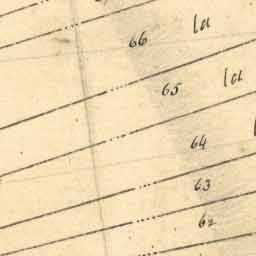 66 la
65 la
64
63
62